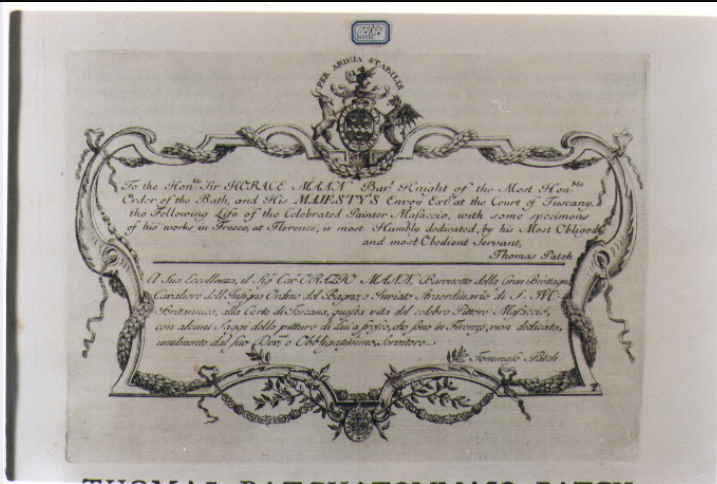 PER ARDUA STABILIS
To the Honble Sir HORACE MANN Bart Knight of the Most Honble
Order of the Bath, and His MAJESTY'S Envoy Extry at the Court of Tuscany,
the Following Life of the Celebrated Painter Masaccio, with some specimens
of his works in Fresco, at Florence, is most Humbly dedicated, by his Most Obliged
and most Obedient Servant,
Thomas Patch
A Sua Eccellenza, il Sigr Cavr ORAZIO MANN, Baronetto della Gran Brettagna
Cavaliere dell'Insigne Ordine del Bagno, e Inviato Straordinario di S. M.
Britannica, alla Corte di Toscana, questa vita del celebre Pittore Masaccio,
con alcuni Saggi delle pitture di Lui a fresco, che sono in Firenze, vien dedicata,
umilmente dal suo Devmo e Obbligatissimo Servitore
Tommaso Patch
THOMAS PATCH TOMMASO PATCH